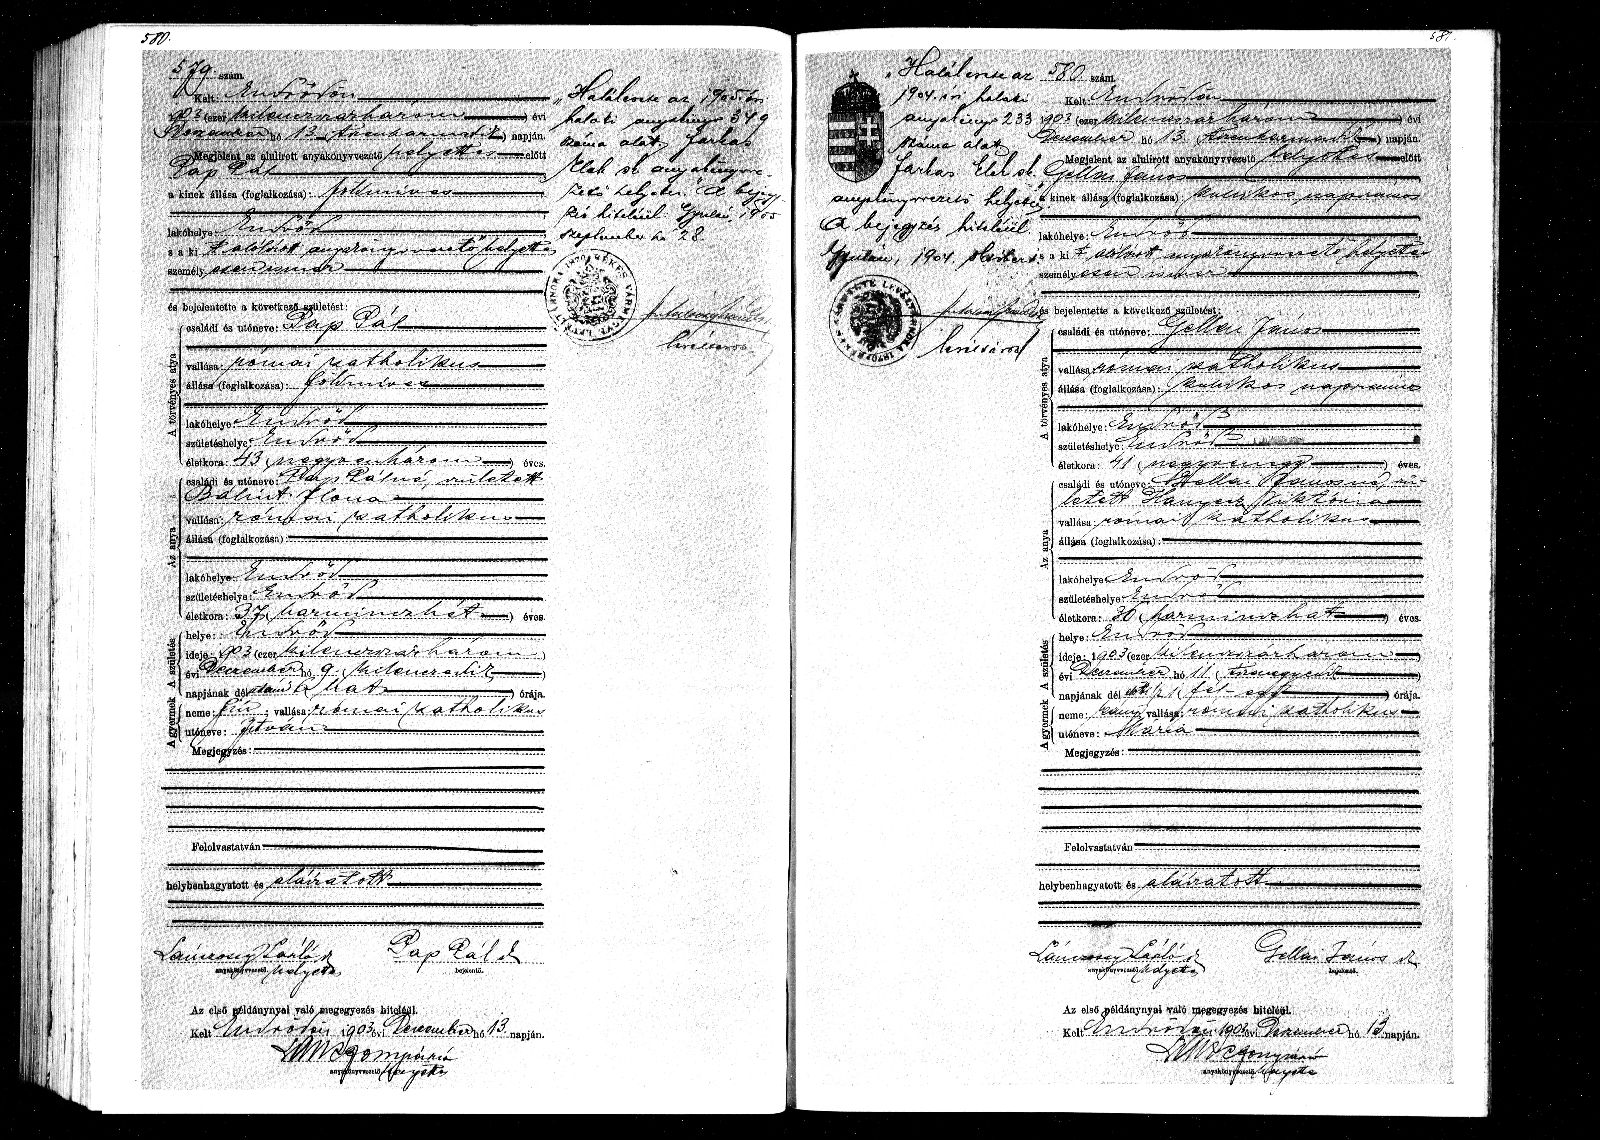 580.
579. szám.
Kelt: Endrődön
1903 (ezer kilenczszázhárom) évi
Deczember hó 13. tizenharmadik) napján.
Megjelent az alulirott anyakönyvvezető helyettes előtt
Pap Pál
a kinek állása (foglalkozása): földmives
lakóhelye: Endrőd
s a ki t alólirott anyakönyvvezető helyettes
személyesen ismer
és bejelentette a következő születést:
A törvényes atya
családi és utóneve: Pap Pál
vallása: római katholikus
állása (foglalkozása): földmives
lakóhelye: Endrőd
születéshelye: Endrőd
életkora: 43 (negyvenhárom) éves.
Az anya
családi és utóneve: Pap Pálné, született
Bálint Ilona
vallása: római katholikus
állása (foglalkozása):
lakóhelye: Endrőd
születéshelye: Endrőd
életkora: 37 (harminczhét) éves.
A gyermek A születés
helye: Endrőd
ideje: 1903 (ezer kilenczszázhárom)
évi Deczember hó 9 (kilenczedik)
napjának dél 6 hat órája.
neme: fiú; vallása: római katholikus
utóneve: István
Megjegyzés:
Felolvastatván
helybenhagyatott és aláiratott
László Pap Pál
anyakönyvvezető helyettes bejelentő.
Az első példánynyal való megegyezés hiteléül.
Kelt Endrődön 1903 évi Deczember hó 13. napján.
anyakönyvvezető helyettes
„Halálesete az 1905. évi
haláli anyakönyv 349
száma alatt, Farkas
Elek sk. anyakönyvve-
zető helyettes." A bejegy-
zés hiteléül. Gyulán, 1905
szeptember hó 28.
levéltárnok
581.
„Halálesete az
1904. évi haláli
anyakönyv 233
száma alatt
Farkas Elek sk.
anyakönyvvezető helyettes"
A bejegyzés hiteléül.
Gyulán, 1904.
levéltárnok
580. szám.
Kelt: Endrődön
1903 (ezer kilenczszázhárom) évi
Deczember hó 13. tizenharmadik) napján.
Megjelent az alulirott anyakönyvvezető helyettes előtt
Gellai János
a kinek állása (foglalkozása): kubikos napszámos
lakóhelye: Endrőd
s a ki t alólirott anyakönyvvezető helyettes
személyesen ismer
és bejelentette a következő születést:
A törvényes atya
családi és utóneve: Gellai János
vallása: római katholikus
állása (foglalkozása): kubikos napszámos
lakóhelye: Endrőd
születéshelye: Endrőd
életkora: 41 (negyvenegy) éves.
Az anya
családi és utóneve: Gellai Jánosné, szü-
letett Viktória
vallása: római katholikus
állása (foglalkozása):
lakóhelye: Endrőd
születéshelye: Endrőd
életkora: 36 (harminczhat) éves.
A gyermek A születés
helye: Endrőd
ideje: 1903 (ezer kilenczszázhárom)
évi Deczember hó 11 tizenegyedik
napjának dél fél egy) órája.
neme: vallása: római katholikus
utóneve: Mária
Megjegyzés:
Felolvastatván
helybenhagyatott és aláiratott
László Gellai János
anyakönyvvezető helyettes bejelentő.
Az első példánynyal való megegyezés hiteléül.
Kelt Endrődön 1903 évi Deczember hó 13. napján.
anyakönyvvezető helyettes